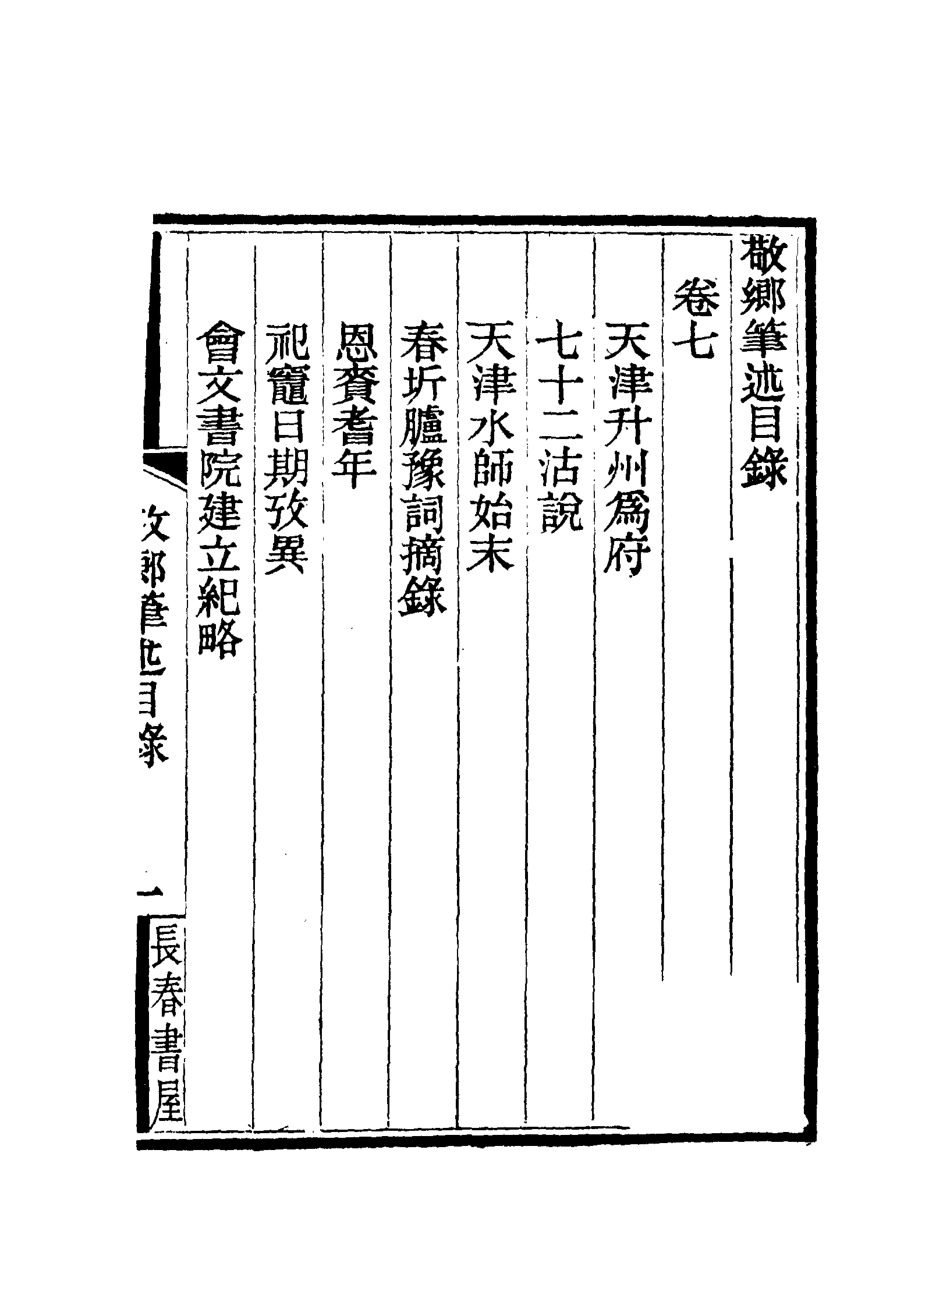 敬鄉筆述目錄
卷七
天津升州爲府
七十二沽說
天津水師始末
春圻臚豫詞摘錄
恩賚耆年
祀竈日期攷異
會文書院建立紀略
敬鄉筆述目錄
一
長春書屋